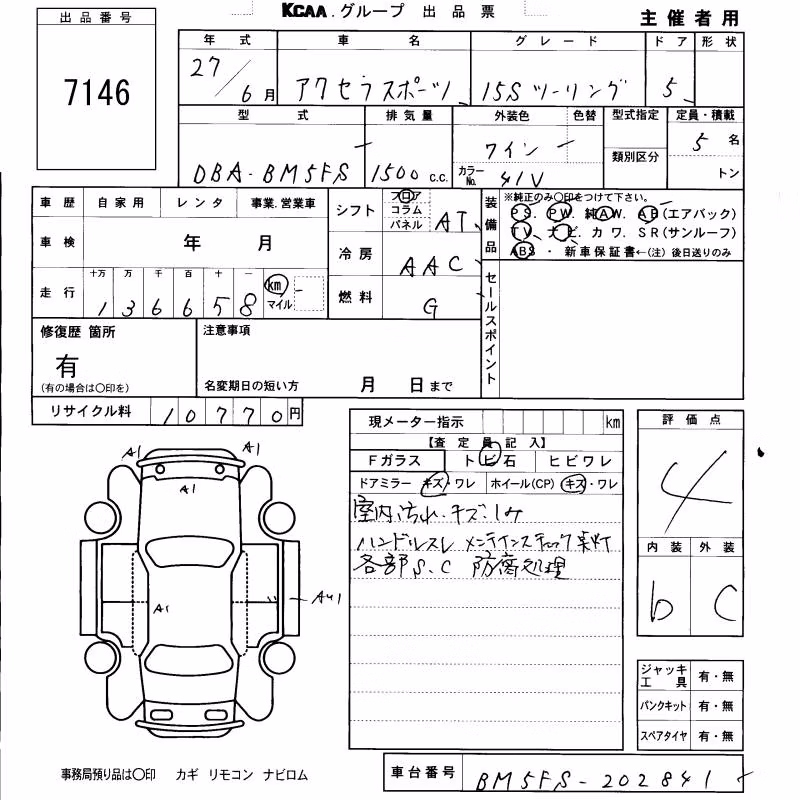 KCAA.グループ 出品票
主催者用
出品番号
7146
年式 車名 グレード ドア 形状
27/6月 アクセラスポーツ 15Sツーリング 5
型式 排気量 外装色 色替 型式指定 定員・積載
類別区分
DBA-BM5FS 1500c.c. ワイン カラーNo. 41V 5名
トン
車歴 自家用 レンタ 事業.営業車
車検 年 月
走行 十万 万 千 百 十 一
136658 km マイル
シフト フロア コラム パネル AT
冷房 AAC
燃料 G
装備品
※純正のみ○印をつけて下さい。
PS. PW. 純AW. AB(エアバック)
TV. ナビ. カワ. SR(サンルーフ)
ABS・新車保証書←(注)後日送りのみ
セールスポイント
修復歴 箇所
有
(有の場合は○印を)
注意事項
名変期日の短い方 月 日まで
リサイクル料 10770円
現メーター指示 km
【査定員記入】
Fガラス トビ石 ヒビワレ
ドアミラー キズ・ワレ ホイール(CP) キズ・ワレ
室内汚れ.キズ.しみ
ハンドルスレ メンテインスチェック点灯
各部S.C 防腐処理
評価点
4
内装 外装
b C
A1 A1
A1
A1
AU1
ジャッキ工具 有・無
パンクキット 有・無
スペアタイヤ 有・無
事務局預り品は○印 カギ リモコン ナビロム
車台番号 BM5FS-202841